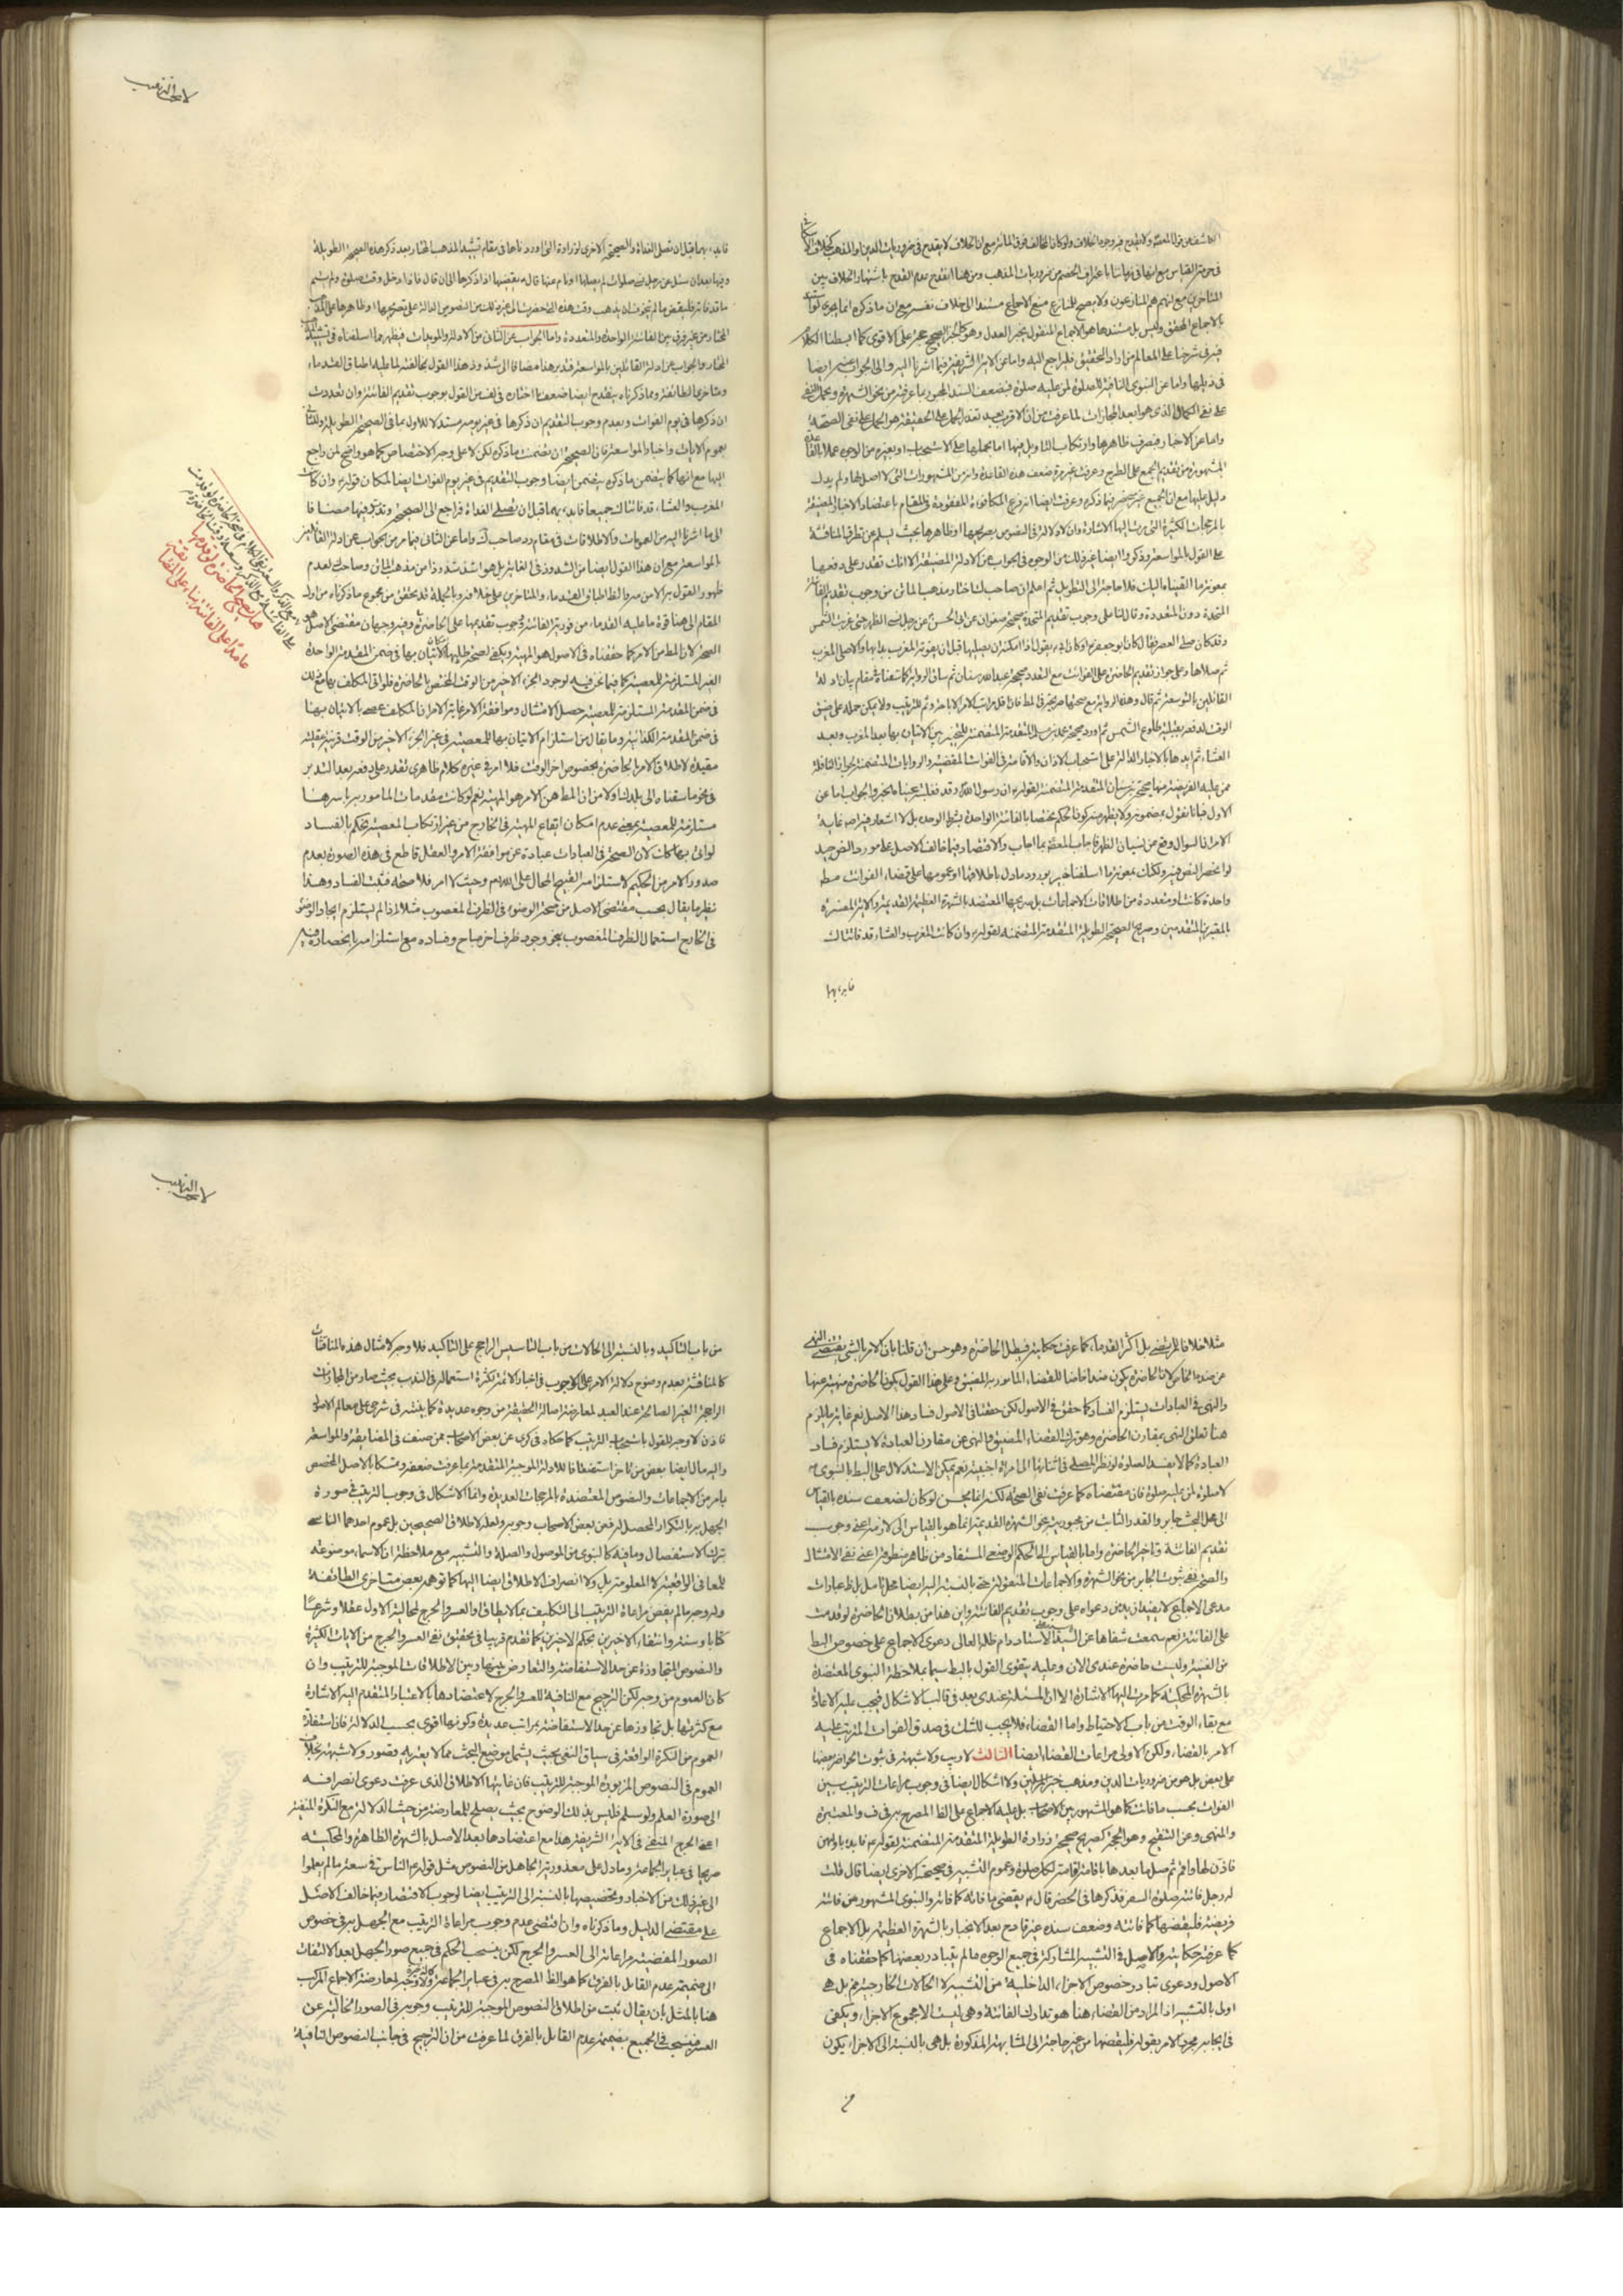 في حرمة القياس مع انها في زماننا باعتراف الخصم من ضروريات المذهب ومن هنا انقدح عدم القدح باشتهار الخلاف بين
المتاخرين مع انهم هم المنازعون ولا يصح للمنازع منع الاجماع مستندا الى خلاف نفسه مع ان ما ذكره انما يجري لو
بالاجماع المحقق وليس بل مستندها هو الاجماع المنقول بخبر العدل وهو كالخبر الصحيح حجة على الاقوى كما ابسطنا الكلام
فيه في شرحنا على المعالم من اراد التحقيق فليراجع اليه واما عن الاية الشريفة فبما اشرنا اليه والى الجواب عنه ايضا
في ذيلها واما عن النبوي النافية للصلوة لمن عليه صلوة فبضعف السند المجبور بما عرفته من نحو الشهرة
على نفي الكمال الذي هو ابعد المجازات لما عرفت من ان الاقرب بعد تعذر الحمل على الحقيقة هو الحمل على نفي الصحة
واما عن الاخبار فبصرف ظاهرها وارتكاب التاويل فيها اما بحملها على الاستحباب او بغيره من الوجوه عملا بالقاعدة
المشهورة من تقديم الجمع على الطرح وعرفت غير مرة ضعف هذه القاعدة وانه من المشهورات التي لا اصل لها ولم يدل
دليل عليها مع ان الجمع غير منحصر فيما ذكره وعرفت ايضا انه فرع المكافؤة المفقودة في المقام باعتضاد الاخبار المضيقة
بالمرجحات الكثيرة التي مرت اليها الاشارة وان لا دلالة في النصوص بصريحها او ظاهرها بحيث يسلم عن تطرق المناقشة
على القول بالمواسعة وذكروا ايضا غير ذلك من الوجوه في الجواب عن الادلة المضيقة الا انك تقدر على دفعها
بمعونة ما القيناه اليك فلا حاجة الى التطويل ثم اعلم ان صاحب ك اختار مذهب الماتن من وجوب تقديم الفائتة
المتحدة دون المتعددة وقال لنا على وجوب تقديم المتحدة صحيحة صفوان عن ابي الحسن ع عن رجل نسي الظهر حتى غربت الشمس
وقد كان صلى العصر فقال كان ابو جعفر ع او كان ابي ع يقول اذا امكنه ان يصليها قبل ان يفوته المغرب بدء بها والا صلى المغرب
ثم صلاها وعلى جواز تقديم الحاضرة على الفوائت مع التعدد صحيحة عبد الله بن سنان ثم ساق الرواية كما سقناه في مقام بيان ادلة
القائلين بالتوسعة ثم قال وهذه الرواية مع صحتها صريحة في المط
العشاء ثم ايدها بالاخبار الدالة على استحباب الاذان والاقامة في الفوائت المقضية والروايات المتضمنة لجواز النافلة
الاول فبانا نقول بمضمونه ولا يظهر منه كون الحكم مختصا بالفائتة الواحدة بشرط الوحدة بل لا اشعار فيه اصلا غاية
الامر ان السؤال وقع عن نسيان الظهر فاجاب المعصوم بما اجاب والاقتصار فيما خالف الاصل على مورد النص جيد
لو انحصر النص فيه ولكنك بمعونة ما اسلفنا خبير بورود ما دل باطلاقها او عمومها على قضاء الفوائت مط
واحدة كانت او متعددة من اطلاقات الاجماعات بل صريحها المعتضد بالشهرة العظيمة القديمة والاية المفسرة
بالمعتبرين المتقدمين وصريح الصحيحة الطويلة المتقدمة المتضمنة لقوله ع وان كانت المغرب والعشاء قد فاتتاك
فابدء بهما
لا يجب الترتيب
فابدء بهما قبل ان تصلي الغداة والصحيحة الاخرى لزرارة التي اوردناها في مقام تشييد المذهب المختار بعد ذكر هذه الصحيحة الطويلة
وفيها بعد ان سئل عن رجل نسي صلوات لم يصلها او نام عنها قال ع يقضيها اذا ذكرها الى ان قال فاذا دخل وقت صلوة ولم يتم
ما قد فاته فليقض ما لم يتخوف ان يذهب وقت هذه التي حضرت الى غير ذلك من النصوص الدالة على تصريحها او ظاهرها على المذهب
المختار من غير فرق بين الفائتة الواحدة والمتعددة واما الجواب عن الثاني من الادلة والموجبات فيظهر بما اسلفناه في تشييد
المختار والجواب عن ادلة القائلين بالمواسعة فتدبر هذا مضافا الى شذوذ هذا القول بمخالفته لما عليه اطباق القدماء
ومتاخري الطائفة ومما ذكرناه ينقدح ايضا ضعف ما اختاره في لف من القول بوجوب تقديم الفائتة وان تعددت
ان ذكرها في يوم الفوات وبعدم وجوب التقديم ان ذكرها في غير يومه مستدلا للاول بما في الصحيحة الطويلة وللثاني
بعموم الايات واخبار المواسعة فان الصحيحة وان تضمنت ما ذكره لكن لا على وجه الاختصاص كما هو واضح لمن راجع
اليها مع انها كما يتضمن ما ذكره يتضمن ايضا وجوب التقديم في غير يوم الفوات ايضا لمكان قوله ع وان كانت
المغرب والعشاء قد فاتتاك جميعا فابدء بهما قبل ان تصلي الغداة فراجع الى الصحيحة وتدبر فيها مضافا
الى ما اشرنا اليه من العمومات والاطلاقات في مقام رد صاحب ك واما عن الثاني فبما مر من الجواب عن ادلة القائلين
بالمواسعة مع ان هذا القول ايضا من الشذوذ في الغاية بل هو اشد شذوذا من مذهب الماتن وصاحب ك لعدم
ظهور القول به الا من مه والظ اطباق القدماء والمتاخرين على خلافه وبالجملة قد تحقق من مجموع ما ذكرناه من اول
المقام الى هنا قوة ما عليه القدماء من فورية الفائتة ووجوب تقديمها على الحاضرة وفيه وجهان مقتضى الاصل هو
الصحة لان المط من الامر كما حققناه في الاصول هو المهية ويكفي لصحة طلبها الاتيان بها في ضمن المقدمة الواحدة
الغير المستلزمة للمعصية كما فيما نحن فيه لوجود الجزء الاخير من الوقت المختص بالحاضرة فلو اتى المكلف بها مع ذلك
في ضمن المقدمة المستلزمة للمعصية حصل الامتثال وموافقة الامر غاية الامر ان المكلف عصى بالاتيان بها
في ضمن المقدمة الكذائية وما يقال من استلزام الاتيان بها للمعصية في غير الجزء الاخير من الوقت قرينة عقلية
مقيدة لاطلاق الامر بالحاضرة بخصوص اخر الوقت فلا امر في غيره كلام ظاهري تقدر على دفعه بعد التدبر
في نحو ما سقناه الى يديك اولا من ان المط من الامر هو المهية نعم لو كانت مقدمات المامور به باسرها
مستلزمة للمعصية بمعنى عدم امكان ايقاع المهية في الخارج من غير ارتكاب المعصية نحكم بالفساد
لو اتى بها كك لان الصحة في العبادات عبارة عن موافقة الامر والعقل قاطع في هذه الصورة بعدم
صدور الامر من الحكيم لاستلزامه القبيح المحال على الله تع وحيث لا امر فلا صحة فثبت الفساد وهذا
نظير ما يقال بحسب مقتضى الاصل من صحة الوضوء في الظرف المغصوب مثلا اذا لم يستلزم ايجاد الوضوء
في الخارج استعمال الظرف المغصوب بنحو وجود ظرف اخر مباح وفساده مع استلزامه بانحصاره فيه
هل يصح الحاضرة لو قدمها
عامدا على الفائتة بناء على المضايقة
مثلا خلافا للمرتضى بل اكثر القدماء كما عرفت حكايته فيبطل الحاضرة وهو حسن ان قلنا بان الامر بالشيء يقتضي النهي
عن ضده الخاص لان الحاضرة يكون ضدا خاصا للقضاء المامور به المضيق وعلى هذا القول يكون الحاضرة منهية عنها
والنهي في العبادات يستلزم الفساد كما حقق في الاصول لكن حققنا في الاصول فساد هذا الاصل نعم غاية ما يلزم
هنا تعلق النهي بمقارن الحاضرة وهو ترك القضاء المضيق والنهي عن مقارن العبادة لا يستلزم فساد
العبادة كما لا يفسد الصلوة لو نظر المصلي في اثنائها الى امراة اجنبية نعم يمكن الاستدلال على البط بالنبوي ص
لا صلوة لمن عليه صلوة فان مقتضاه كما عرفت نفي الصحة لكنه انما يحسن لو كان لضعف سنده بالقياس
الى محل البحث جابر والقدر الثابت من مجبوريته بنحو الشهرة القديمة انما هو بالقياس الى لازمه اعني وجوب
تقديم الفائتة وتاخر الحاضرة واما بالقياس الى الحكم الوضعي المستفاد من ظاهر منطوقه اعني نفي الامتثال
والصحة ففي ثبوت الجابر من نحو الشهرة والاجماعات المنقولة حتى بالنسبة اليه ايضا محل تامل بل ظ عبارات
مدعي الاجماع لا يفيد ازيد من دعواه على وجوب تقديم الفائتة واين هذا من بطلان الحاضرة لو قدمت
على الفائتة نعم سمعت شفاها عن السيد الاستاد دام ظله العالي دعوى الاجماع على خصوص البط
من الغنية وليست حاضرة عندي الان وعليه يتقوى القول بالبط سيما بملاحظة النبوي المعتضدة
بالشهرة المحكية كما مرت اليها الاشارة الا ان المسئلة عندي بعد في قالب الاشكال فيجب عليه الاعادة
مع بقاء الوقت من باب الاحتياط واما القضاء فلا يجب للشك في صدق الفوات المترتب عليه
الامر بالقضاء ولكن الاولى مراعات القضاء ايضا الثالث لا ريب ولا شبهة في ثبوت الحواضر بعضها
على بعض بل هو من ضروريات الدين ومذهب خير المرسلين ولا اشكال ايضا في وجوب مراعات الترتيب بين
الفوائت بحسب ما فات كما هو المشهور بين الاصحاب بل عليه الاجماع على الظ المصرح به في ف والمعتبر
والمنتهى وعن التنقيح وهو الحجة كصريح صحيحة زرارة الطويلة المتقدمة المتضمنة لقوله ع فابدء باولهن
فاذن لها واقم ثم صلها بعدها باقامة اقامة لكل صلوة وعموم التشبيه في صحيحته الاخرى ايضا قال قلت
له رجل فاتته صلوة السفر فذكرها في الحضر قال ع يقضي ما فاته كما فاته والنبوي المشهور من فاتته
فريضة فليقضها كما فاتته وضعف سنده غير قادح بعد الانجبار بالشهرة العظيمة بل الاجماع
كما عرفت حكايته والاصل في التشبيه المشاركة في جميع الوجوه ما لم يتبادر بعضها كما حققناه في
الاصول ودعوى تبادر خصوص الاجزاء الداخلية من التشبيه لا الحالات الخارجية م بل هي
اولى بالتشبيه اذ المراد من القضاء هنا هو تدارك الفائتة وهي ليست الا مجموع الاجزاء ويكفي
في ايجابه مجرد الامر بقوله فليقضها من غير حاجة الى المشابهة المذكورة بل هي بالنسبة الى الاجزاء يكون
من
لا يجب الترتيب
من باب التاكيد وبالنسبة الى الحالات من باب التاسيس الراجح على التاكيد فلا وجه لامثال هذه المناقشات
كالمناقشة بعدم وضوح دلالة الامر على الوجوب في اخبار الائمة لكثرة استعماله في الندب بحيث صار من المجازات
الراجحة الغير الصالحة عند العبد لمعارضة اصالة الحقيقة من وجوه عديدة كما بينته في شرحي على معالم الاصول
فاذن لا وجه للقول باستحباب الترتيب كما حكاه في كرى عن بعض الاصحاب ممن صنف في المضايقة والمواسعة
واليه مال ايضا بعض من تاخر استضعافا للادلة الموجبة المتقدمة بما عرفت ضعفه وتمسكا بالاصل المخصص
بما مر من الاجماعات والنصوص المعتضدة بالمرجحات العديدة وانما الاشكال في وجوب الترتيب في صورة
الجهل به بالتكرار المحصل له فعن بعض الاصحاب وجوبه ولعله لاطلاق الصحيحين بل عموم احدهما الناشي
ترك الاستفصال ومافيه كالنبوي من الموصول والصلة والتشبيه مع ملاحظة ان الاسماء موضوعة
للمعاني الواقعية لا المعلومة بل ولا انصراف الاطلاق ايضا اليها كما توهمه بعض متاخري الطائفة
وله وجه ما لم يفض مراعاة الترتيب الى التكليف بما لا يطاق او العسر والحرج لمحالية الاول عقلا وشرعا
كتابا وسنة وانتفاء الاخيرين بحكم الاخيرين كما تقدم قريبا في تحقيق نفي العسر والحرج من الايات الكثيرة
والنصوص المتجاوزة عن حد الاستفاضة والتعارض بينها وبين الاطلاقات الموجبة للترتيب وان
كان العموم من وجه لكن الترجيح مع النافية للعسر والحرج لاعتضادها بالاعتبار المتقدم اليه الاشارة
مع كثرتها بل تجاوزها عن حد الاستفاضة بمراتب عديدة وكونها اقوى بحسب الدلالة فان استفادة
العموم من النكرة الواقعة في سياق النفي بحيث يشمل موضع البحث مما لا يعتريه قصور ولا شبهة بخلاف
العموم في النصوص المزبورة الموجبة للترتيب فان غايتها الاطلاق الذي عرفت دعوى انصرافه
الى صورة العلم ولو سلم فليس بذلك الوضوح بحيث يصلح للمعارضة من حيث الدلالة مع النكرة المنفية
اعني الحرج المنفي في الاية الشريفة هذا مع اعتضادها بعد الاصل بالشهرة الظاهرة والمحكية
صريحا في عبارة جماعة وما دل على معذورية الجاهل من النصوص مثل قوله ع الناس في سعة ما لم يعلموا
الى غير ذلك من الاخبار وتخصيصها بالنسبة الى الترتيب ايضا لوجوب الاقتصار فيما خالف الاصل
على مقتضى الدليل وما ذكرناه وان اقتضى عدم وجوب مراعاة الترتيب مع الجهل به في خصوص
الصور المفضية مراعاته الى العسر والحرج لكن ينسحب الحكم في جميع صور الجهل بعد الالتفات
الى ضميمة عدم القائل بالفرق كما هو الظ المصرح به في عبارة جماعة ولا وجه لمعارضة الاجماع المركب
هنا بالمثل بان يقال ثبت من اطلاق النصوص الموجبة للترتيب وجوبه في الصور الخالية عن
العسر فينسحب في الجميع بضميمة عدم القائل بالفرق لما عرفت من ان الترجيح في جانب النصوص النافية